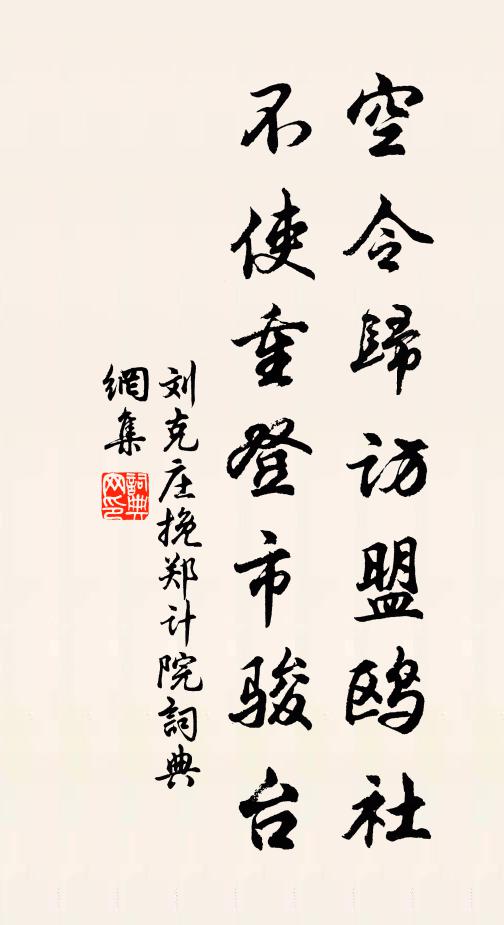 空令歸访盟鸥社
不使重登市骏台
刘克庄挽郑计院詞典
網集
詞典
网印